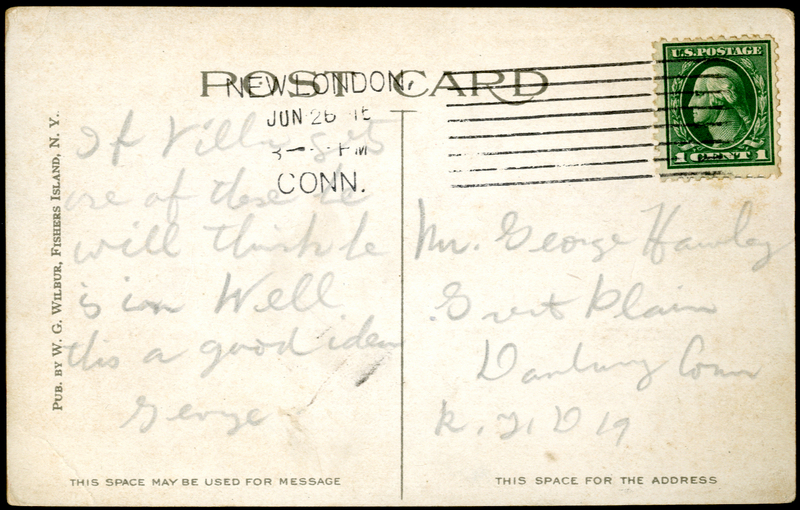 POST CARD
NEW LONDON,
JUN 26 15
3 — PM
CONN.
U.S. POSTAGE
1 CENT 1
PUB. BY W. G. WILBUR, FISHERS ISLAND, N. Y.
If gets
one of these he
will think he
is in Well
this a good idea
George
Mr. George Hawley
Plain
Danbury Conn
R. F. D 19
THIS SPACE MAY BE USED FOR MESSAGE
THIS SPACE FOR THE ADDRESS